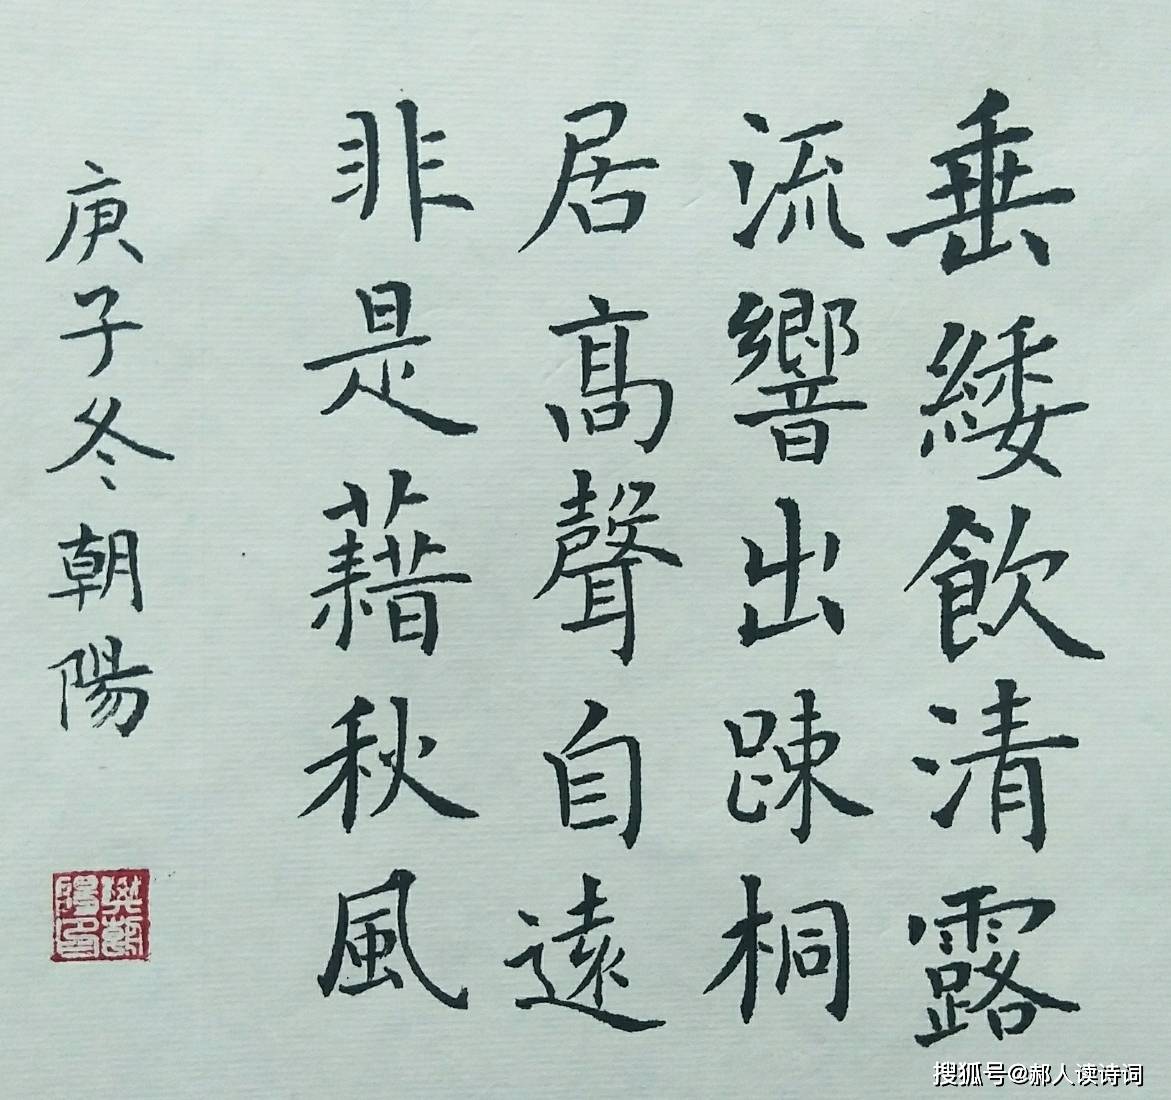 垂緌飲清露
流響出踈桐
居高聲自遠
非是藉秋風
庚子冬朝陽
樊朝陽印
搜狐号@郝人读诗词